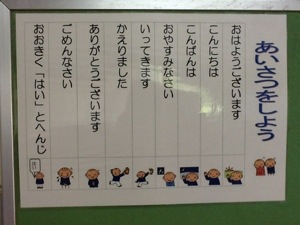 あいさつをしよう
おはようございます
こんにちは
こんばんは
おやすみなさい
いってきます
かえりました
ありがとうございます
ごめんなさい
おおきく「はい」とへんじ